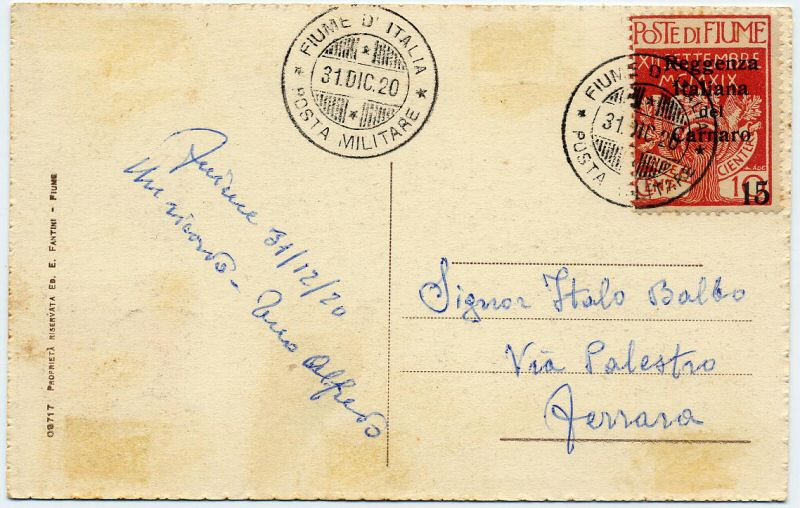 FIUME D'ITALIA
31.DIC.20
POSTA MILITARE
POSTE DI FIUME
XII SETTEMBRE
MCMXIX
Reggenza
Italiana
del
Carnaro
15
FIUME D'ITALIA
31.DIC.20
POSTA MILITARE
Fiume 31/12/20
Un ricordo - Tuo Alfredo
Signor Italo Balbo
Via Palestro
Ferrara
09717 PROPRIETÀ RISERVATA ED. E. FANTINI - FIUME